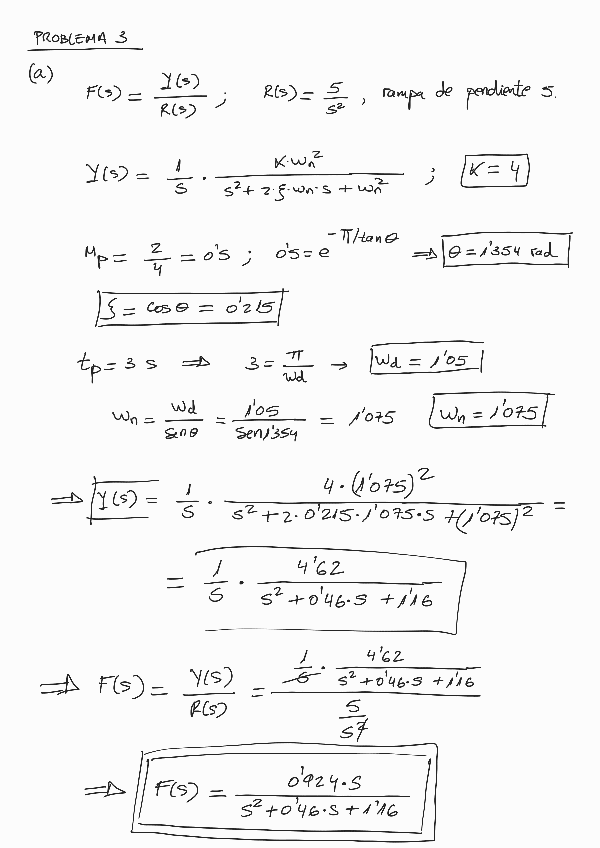 PROBLEMA 3
(a)
F(s) = Y(s)/R(s) ; R(s) = 5/s² , rampa de pendiente 5.
Y(s) = 1/s · K·ωn²/(s² + 2·ξ·ωn·s + ωn²) ; K = 4
Mp = 2/4 = 0'5 ; 0'5 = e^(-π/tanθ) ⇒ θ = 1'354 rad
ξ = cosθ = 0'215
tp = 3 s ⇒ 3 = π/ωd → ωd = 1'05
ωn = ωd/senθ = 1'05/sen1'354 = 1'075 ωn = 1'075
⇒ Y(s) = 1/s · 4·(1'075)²/(s² + 2·0'215·1'075·s + (1'075)²) =
= 1/s · 4'62/(s² + 0'46·s + 1'16)
⇒ F(s) = Y(s)/R(s) = (1/s · 4'62/(s² + 0'46·s + 1'16))/(5/s²)
⇒ F(s) = 0'924·s/(s² + 0'46·s + 1'16)